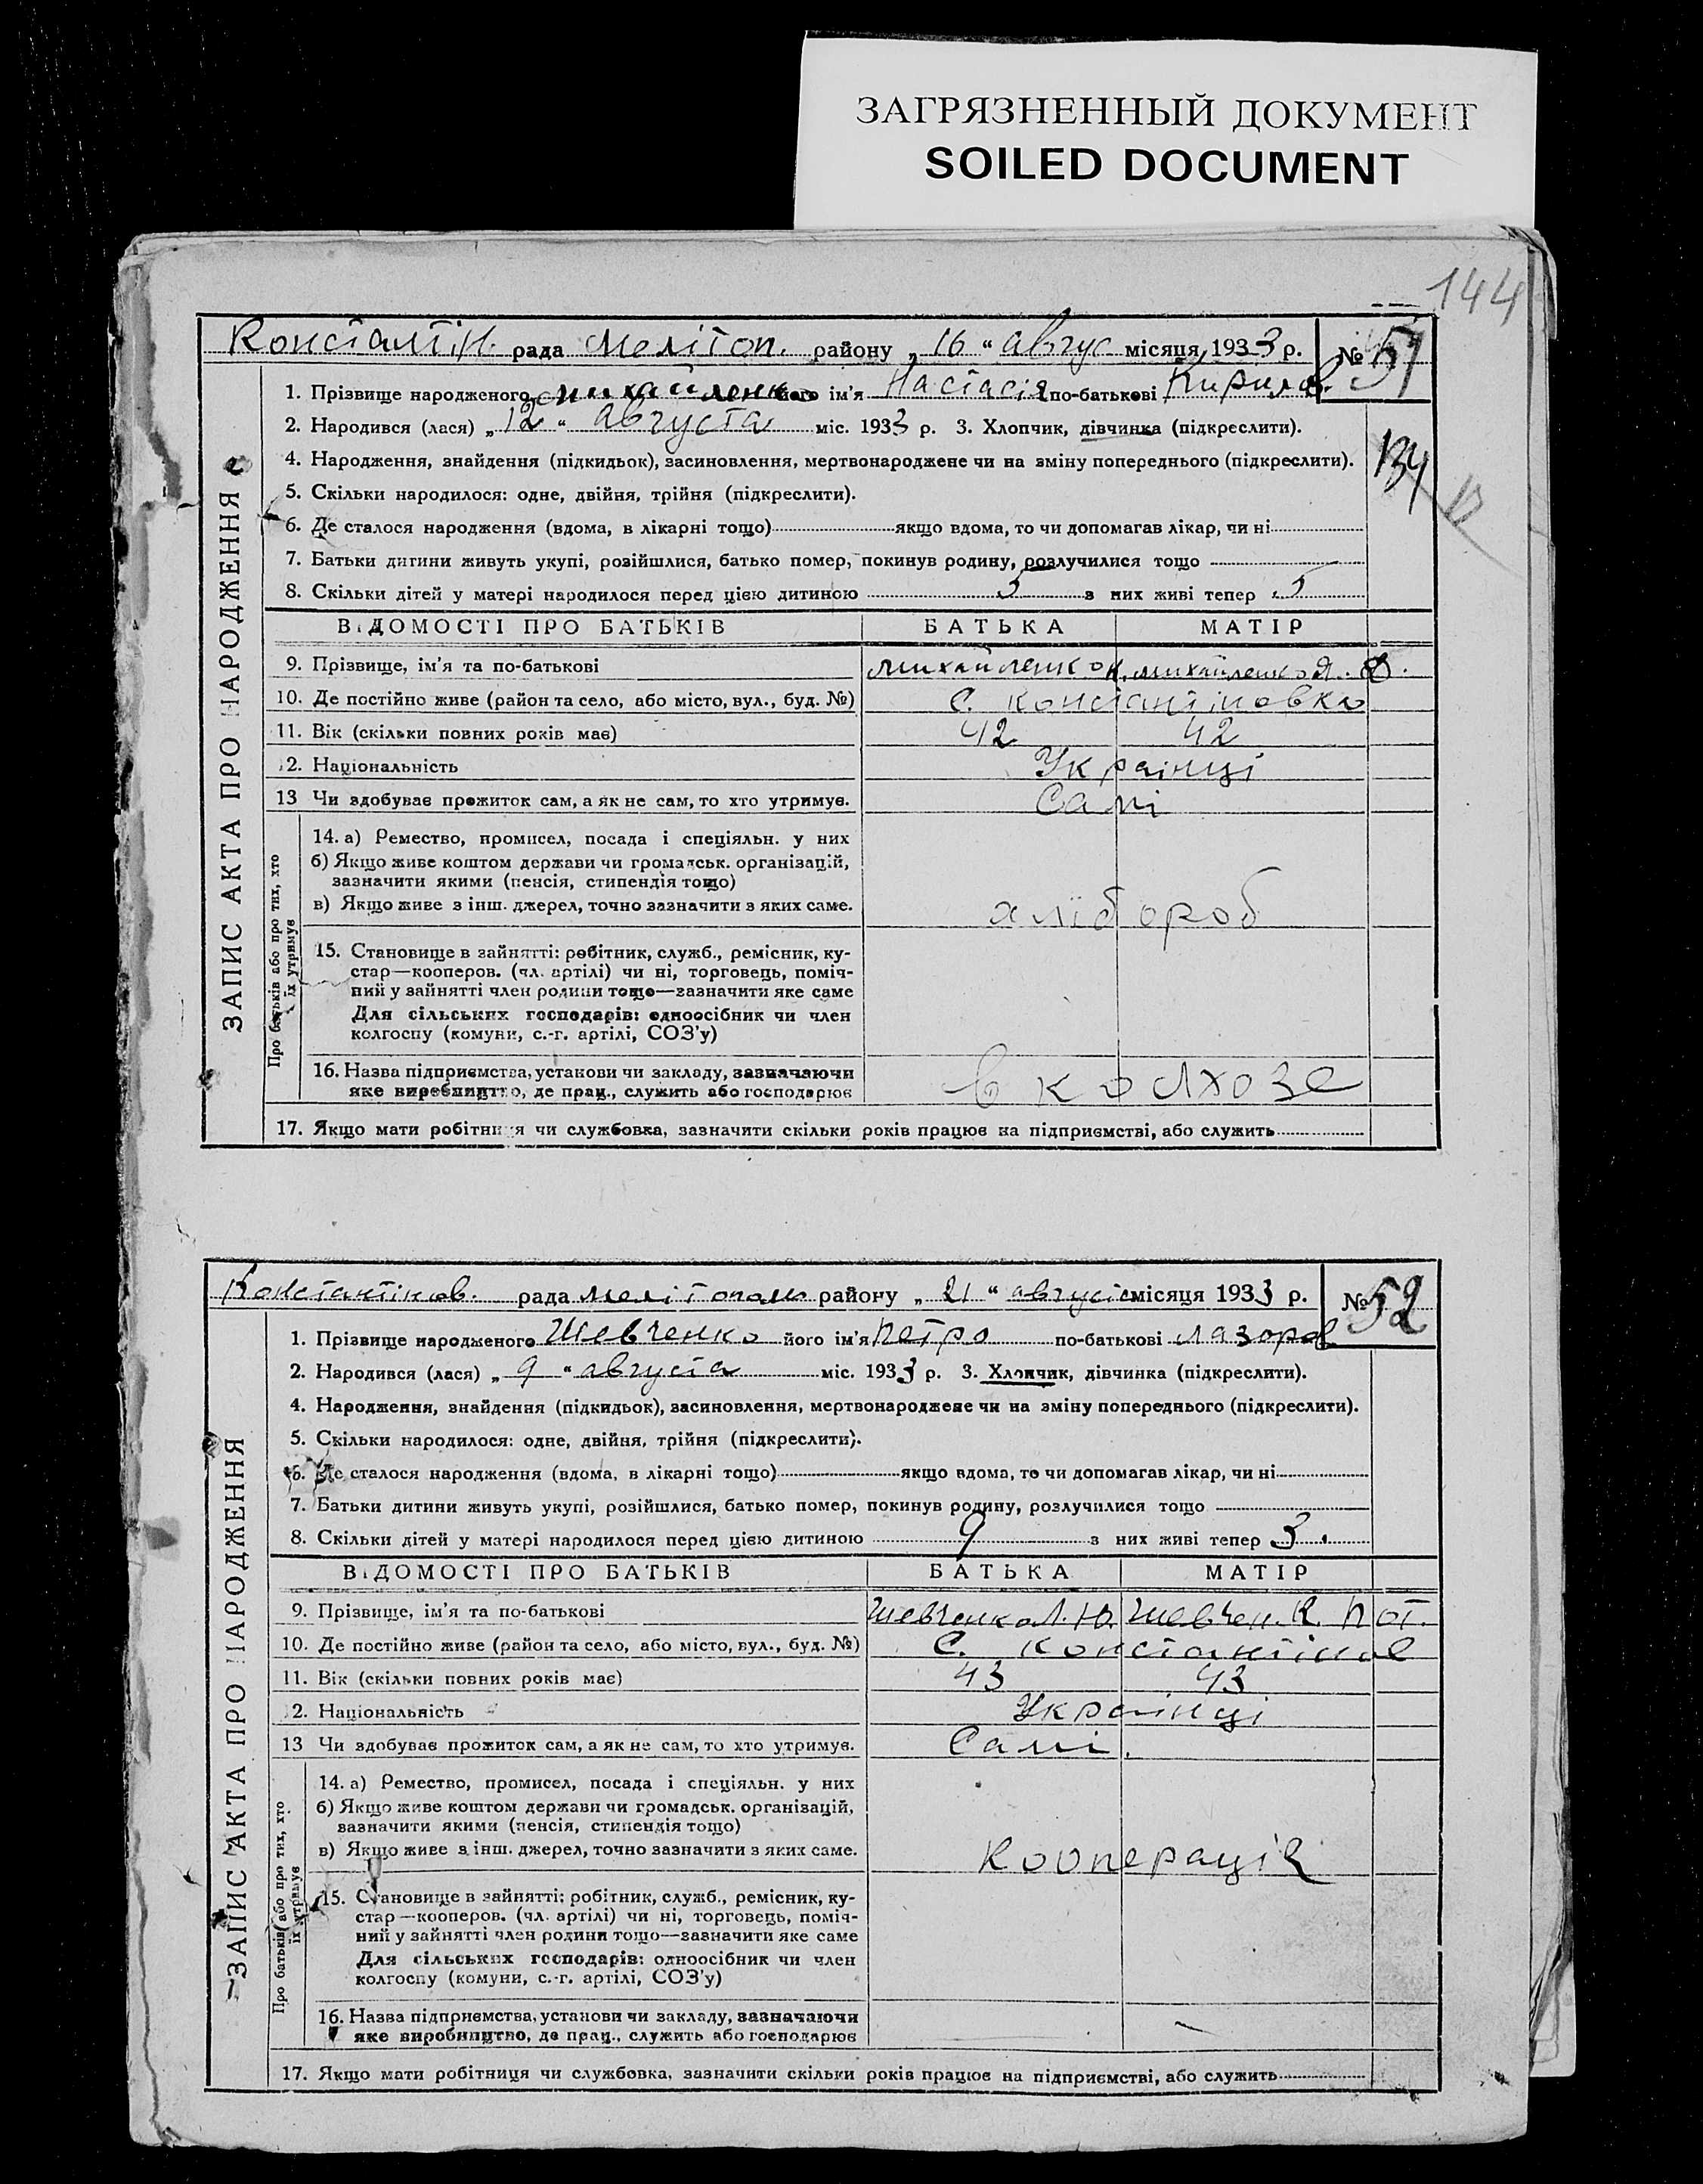 ЗАГРЯЗНЕННЫЙ ДОКУМЕНТ
SOILED DOCUMENT
144
Константін. рада Мелітоп. району „ 16 “ авгус місяця 1933 р. № 51
1. Прізвище народженого Михайленко його ім’я Настасія по-батькові Кирилов.
2. Народився (лася) „ 12 “ августа міс. 1933 р. 3. Хлопчик, дівчинка (підкреслити).
134
4. Народження, знайдення (підкидьок), засиновлення, мертвонароджене чи на зміну попереднього (підкреслити).
5. Скільки народилося: одне, двійня, трійня (підкреслити).
6. Де сталося народження (вдома, в лікарні тощо) якщо вдома, то чи допомагав лікар, чи ні
7. Батьки дитини живуть укупі, розійшлися, батько помер, покинув родину, розлучилися тощо
8. Скільки дітей у матері народилося перед цією дитиною 5 з них живі тепер 5
ЗАПИС АКТА ПРО НАРОДЖЕННЯ
ВІДОМОСТІ ПРО БАТЬКІВ БАТЬКА МАТІР
9. Прізвище, ім’я та по-батькові Михайленко К. Михайленко Я. Ф.
10. Де постійно живе (район та село, або місто, вул., буд. №) С. Константіновка
11. Вік (скільки повних років має) 42 42
12. Національність Українці
13 Чи здобуває прожиток сам, а як не сам, то хто утримує. Самі
Про батьків або про тих, хто
їх утримує
14. а) Ремество, промисел, посада і спеціяльн. у них
б) Якщо живе коштом держави чи громадськ. організацій,
зазначити якими (пенсія, стипендія тощо)
в) Якщо живе з інш. джерел, точно зазначити з яких саме. хлібороб
15. Становище в зайнятті: робітник, служб., ремісник, ку-
стар—кооперов. (чл. артілі) чи ні, торговець, поміч-
ний у зайнятті член родини тощо—зазначити яке саме
Для сільських господарів: одноосібник чи член
колгоспу (комуни, с.-г. артілі, СОЗ’у)
16. Назва підприємства, установи чи закладу, зазначаючи
яке виробництво, де прац., служить або господарює в колхозе
17. Якщо мати робітниця чи службовка, зазначити скільки років працює на підприємстві, або служить
Константінов. рада Мелітопол району „ 21 “ август місяця 1933 р. № 52
1. Прізвище народженого Шевченко його ім’я Петро по-батькові Лазоров
2. Народився (лася) „ 9 “ августа міс. 1933 р. 3. Хлопчик, дівчинка (підкреслити).
4. Народження, знайдення (підкидьок), засиновлення, мертвонароджене чи на зміну попереднього (підкреслити).
5. Скільки народилося: одне, двійня, трійня (підкреслити).
6. Де сталося народження (вдома, в лікарні тощо) якщо вдома, то чи допомагав лікар, чи ні
7. Батьки дитини живуть укупі, розійшлися, батько помер, покинув родину, розлучилися тощо
8. Скільки дітей у матері народилося перед цією дитиною 9 з них живі тепер 3.
ЗАПИС АКТА ПРО НАРОДЖЕННЯ
ВІДОМОСТІ ПРО БАТЬКІВ БАТЬКА МАТІР
9. Прізвище, ім’я та по-батькові Шевченко Л. Ю. Шевчен. К. Пот.
10. Де постійно живе (район та село, або місто, вул., буд. №) С. Константінов
11. Вік (скільки повних років має) 43 43
12. Національність Українці
13 Чи здобуває прожиток сам, а як не сам, то хто утримує. Самі.
Про батьків або про тих, хто
їх утримує
14. а) Ремество, промисел, посада і спеціяльн. у них
б) Якщо живе коштом держави чи громадськ. організацій,
зазначити якими (пенсія, стипендія тощо)
в) Якщо живе з інш. джерел, точно зазначити з яких саме. Кооперація
15. Становище в зайнятті: робітник, служб., ремісник, ку-
стар—кооперов. (чл. артілі) чи ні, торговець, поміч-
ний у зайнятті член родини тощо—зазначити яке саме
Для сільських господарів: одноосібник чи член
колгоспу (комуни, с.-г. артілі, СОЗ’у)
16. Назва підприємства, установи чи закладу, зазначаючи
яке виробництво, де прац., служить або господарює
17. Якщо мати робітниця чи службовка, зазначити скільки років працює на підприємстві, або служить